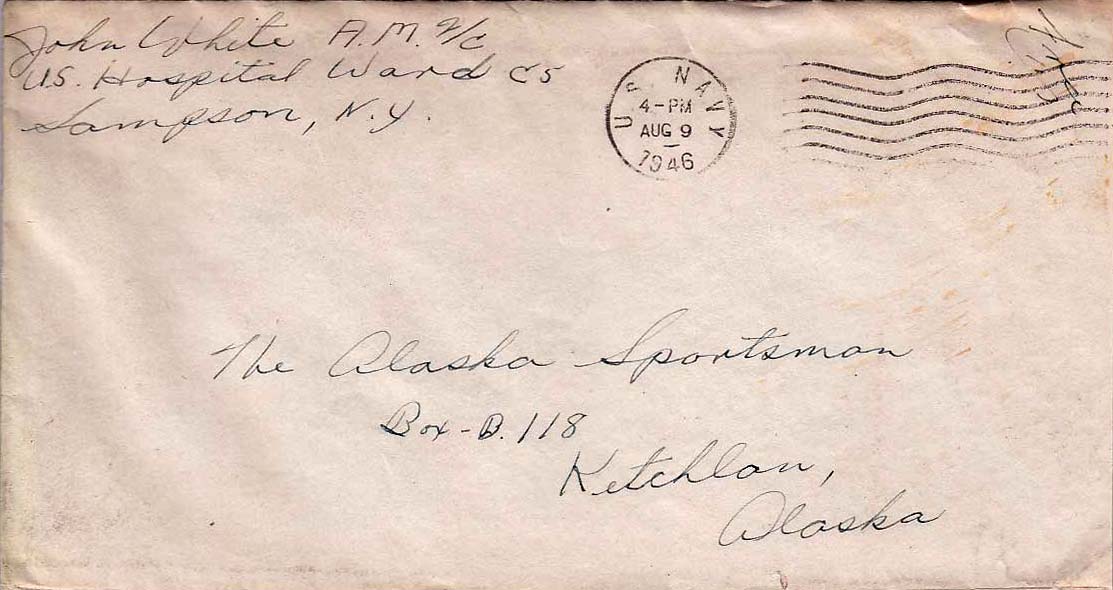 John White A.M. 2/c
U.S. Hospital Ward C5
Sampson, N.Y.
U.S. NAVY
4-PM
AUG 9
1946
The Alaska Sportsman
Box-B.118
Ketchlan,
Alaska